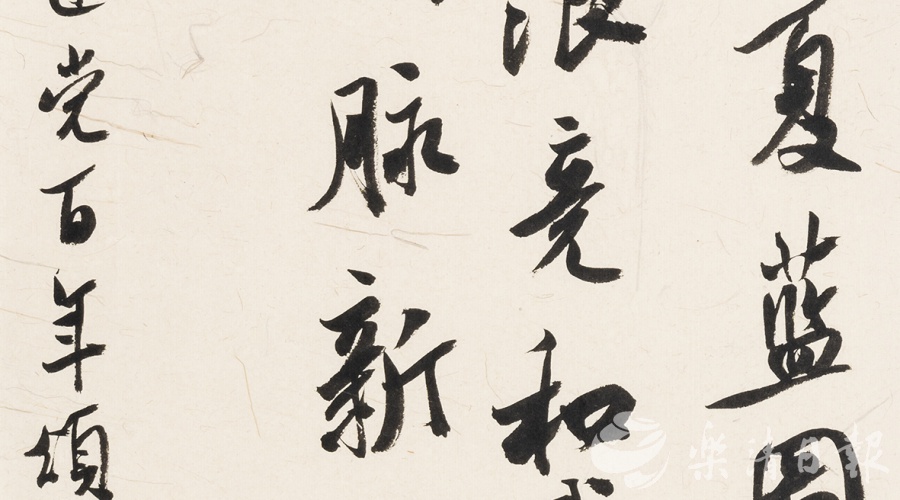 夏蓝图
浪竞和
脉新
建党百年颂
樂清日報